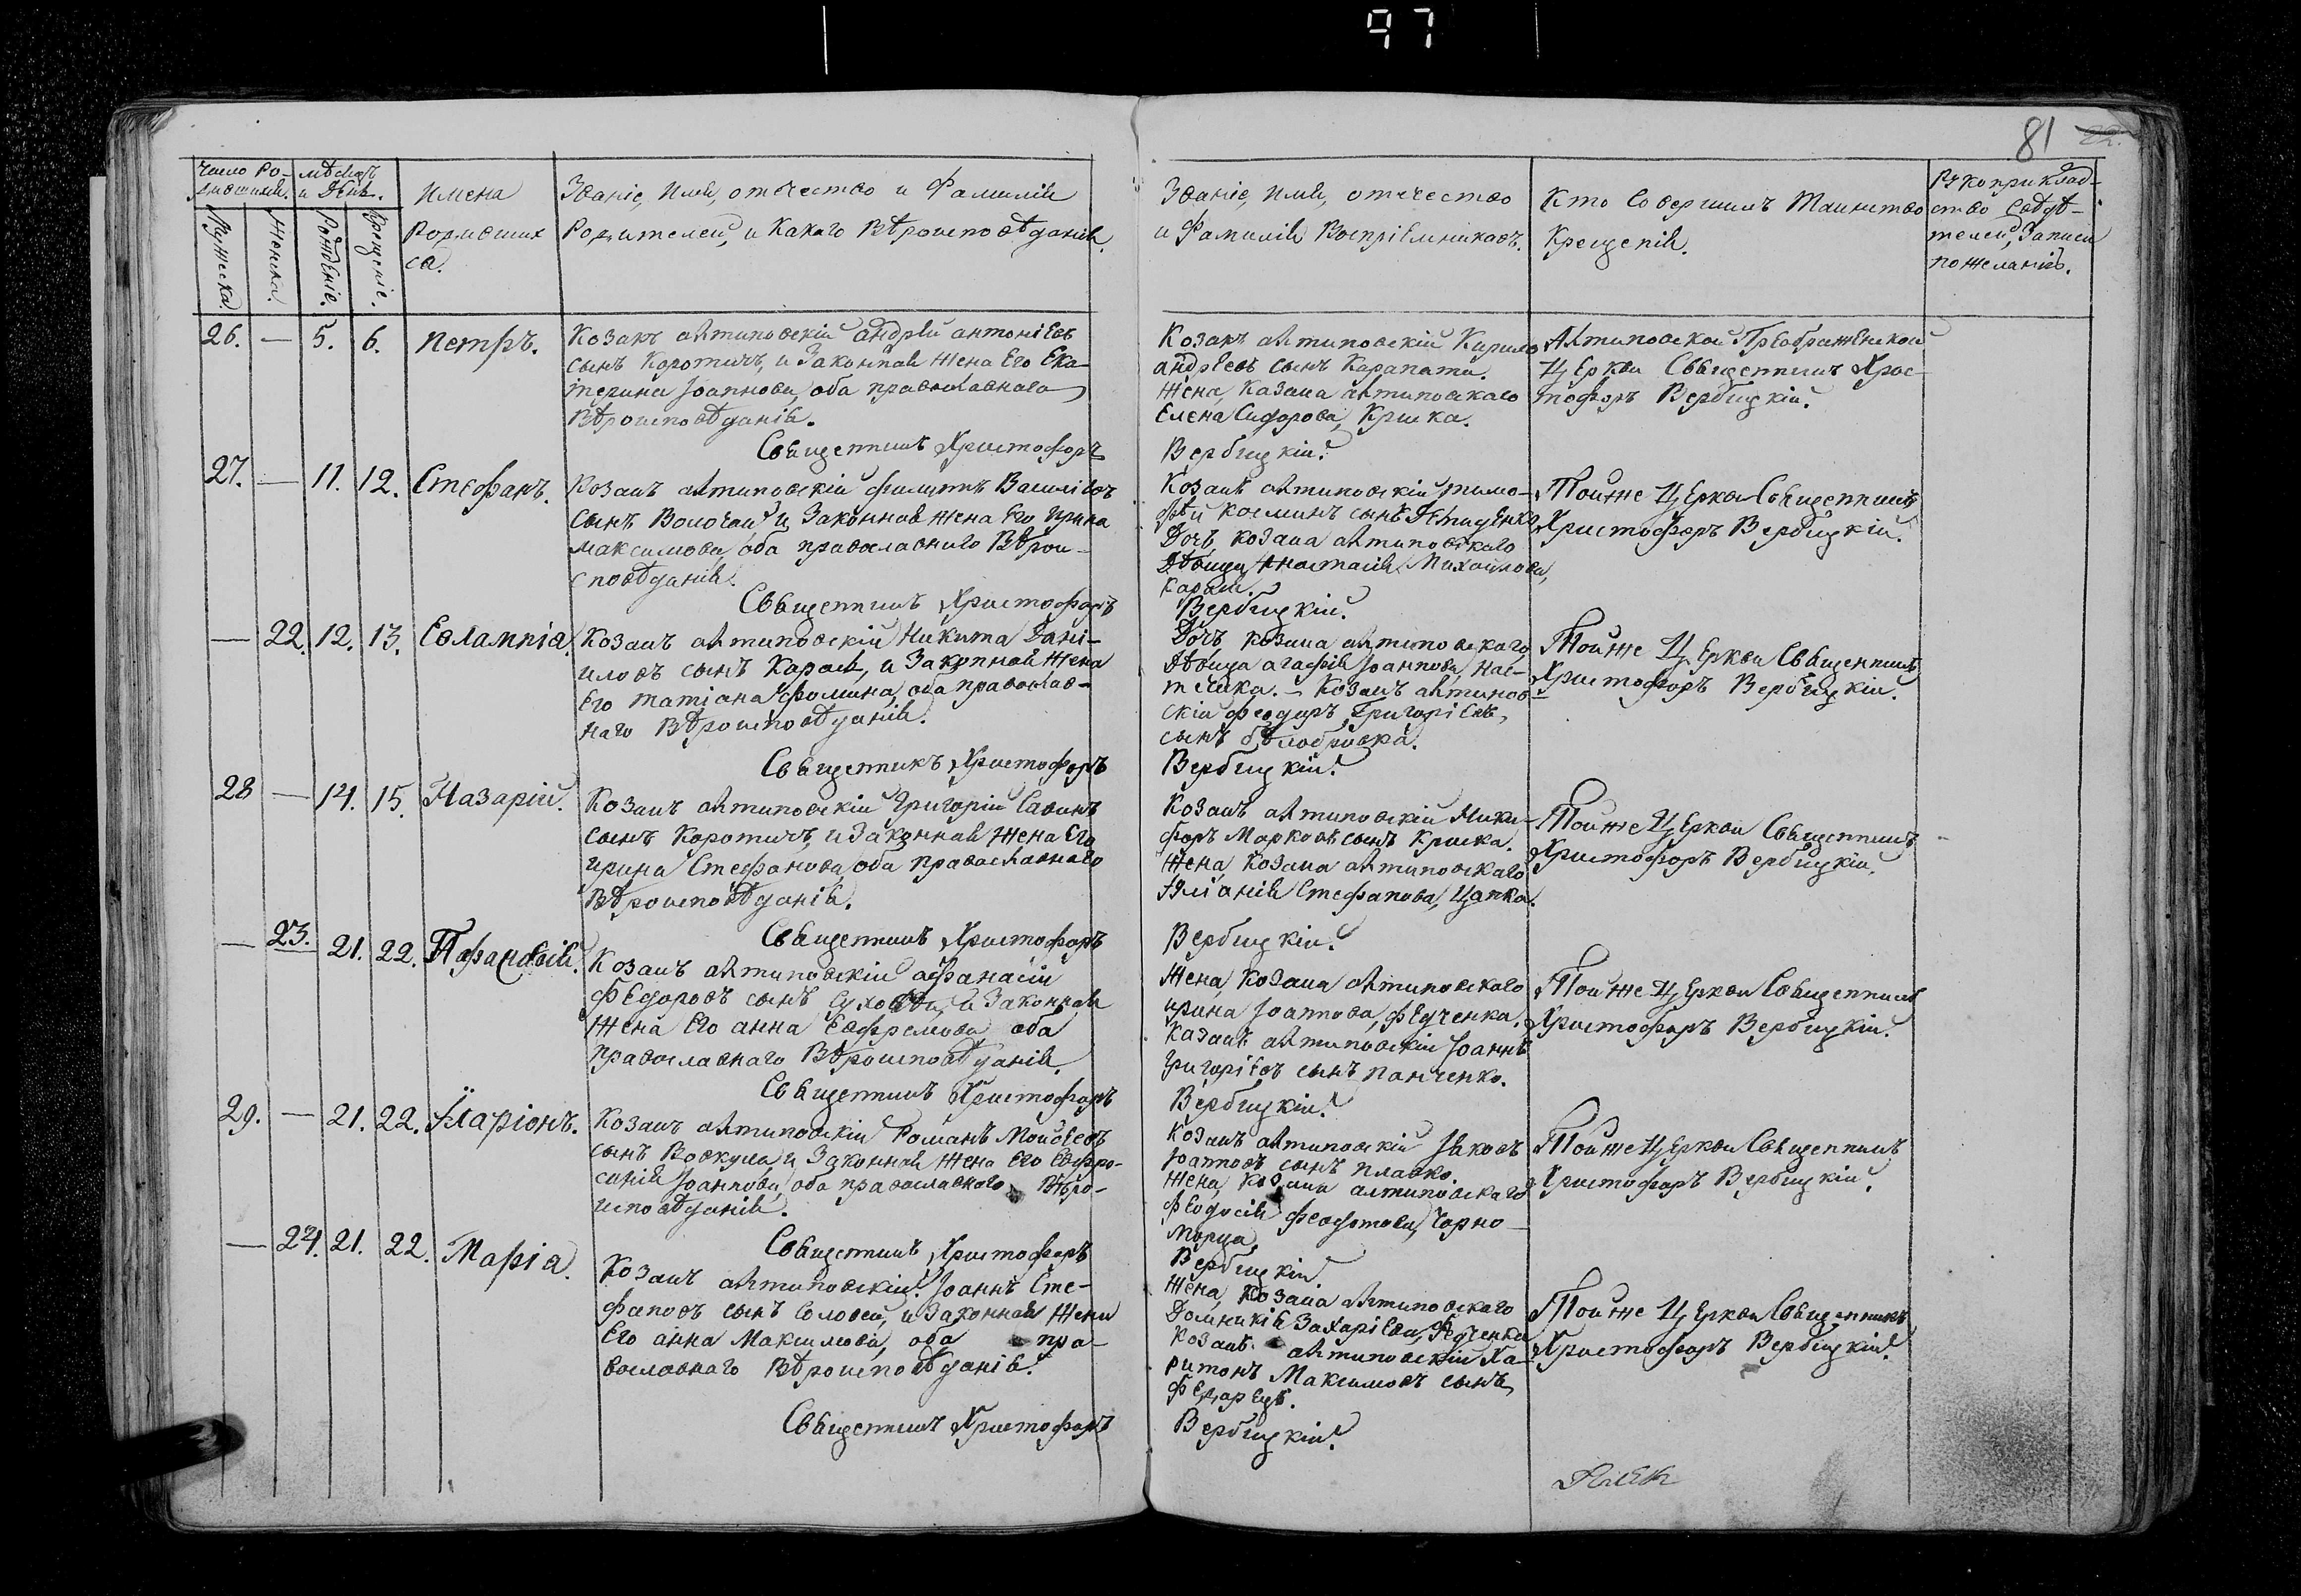 97
81
Число Ро-
дившихся.
Мѣсяцъ
и День.
Мужеска.
Женска.
Рожденіе.
Крещеніе.
Имена
Родивших
ся.
Званіе, Имя, отчество и Фамилія
Родителей, и Какого Вѣроисповѣданія.
Званіе, Имя, отчество
и Фамилія Воспріемниковъ.
Кто Совершилъ Таинство
Крещенія.
Рукоприклад-
ство Свидѣ-
телей, Записи
по Желанію.
26. — 5. 6. Петръ.
Козакъ алтиновскій андрей антоніевъ
сынъ Коротичъ, и Законная Жена Его Ека-
терина Іоаннова, оба православнаго
Вѣроисповѣданія.
Священникъ Христофоръ
Козакъ алтиновскій Кирило
андреевъ сынъ Карапата.
Жена, Казака алтиновскаго
Елена Сидорова, Кришка.
Вербицкій.
Алтиновской Преображенской
Церкви Священникъ Хрис-
тофоръ Вербицкій.
27. — 11. 12. Стефанъ.
Козакъ алтиновскій Филиппъ Василіевъ
сынъ Волочай, и Законная Жена Его Ирина
Максимова, оба православнаго Вѣрои-
сповѣданія.
Священникъ Христофоръ
Козакъ алтиновскій Тимо-
фѣй Косминъ сынъ
Дочь, козака алтиновскаго
Дѣвица Анастасія Михайлова,
Вербицкій.
Тойже Церкви Священникъ
Христофоръ Вербицкій.
— 22. 12. 13. Евлампіа.
Козакъ алтиновскій Никита Дані-
иловъ сынъ и Законная Жена
Его Татіана Фомина, оба православ-
наго Вѣроисповѣданія.
Священникъ Христофоръ
Дочь козака алтиновскаго
Дѣвица агафія Іоаннова,
Козакъ алтинов-
скій Феодоръ Григоріевъ,
сынъ бѣлобровка.
Вербицкій.
Тойже Церкви Священникъ
Христофоръ Вербицкій.
28 — 14. 15. Назарій.
Козакъ алтиновскій Григорій Савинъ
сынъ Коротичъ, и Законная Жена Его
ирина Стефанова, оба православнаго
Вѣроисповѣданія.
Священникъ Христофоръ
Козакъ алтиновскій Ники-
форъ Марковъ сынъ Кришка.
Жена, Козака алтиновскаго
Стефанова, Цапка.
Вербицкій.
Тойже Церкви Священникъ
Христофоръ Вербицкій.
— 23. 21. 22.
Козакъ алтиновскій афанасій
Федоровъ сынъ и Законная
Жена Его анна Евфремова оба
Православнаго Вѣроисповѣданія.
Священникъ Христофоръ
Жена, Козака алтиновскаго
ирина Іоаннова, Федченка.
Казакъ алтиновскій Іоаннъ
Григоріевъ сынъ панченко.
Вербицкій.
Тойже Церкви Священникъ
Христофоръ Вербицкій.
29. — 21. 22. Иларіонъ.
Козакъ алтиновскій Романъ Моисеевъ
сынъ и Законная Жена Его Евфро-
синія Іоаннова, оба православнаго Вѣро-
исповѣданія.
Священникъ Христофоръ
Козакъ алтиновскій Іаковъ
Іоанновъ сынъ плавко.
Жена, Козака алтиновскаго
Феодосія Чорно-
Вербицкій.
Тойже Церкви Священникъ
Христофоръ Вербицкій.
— 24. 21. 22. Маріа.
Козакъ алтиновскій Іоаннъ Сте-
фановъ сынъ Соловей, и Законная Жена
Его анна Максимова, оба пра-
вославнаго Вѣроисповѣданія.
Священникъ Христофоръ
Жена, Козака алтиновскаго
Домникія Захаріева, Федченка
Козакъ алтиновскій Ха-
ритонъ Максимовъ сынъ
Вербицкій.
Тойже Церкви Священникъ
Христофоръ Вербицкій.